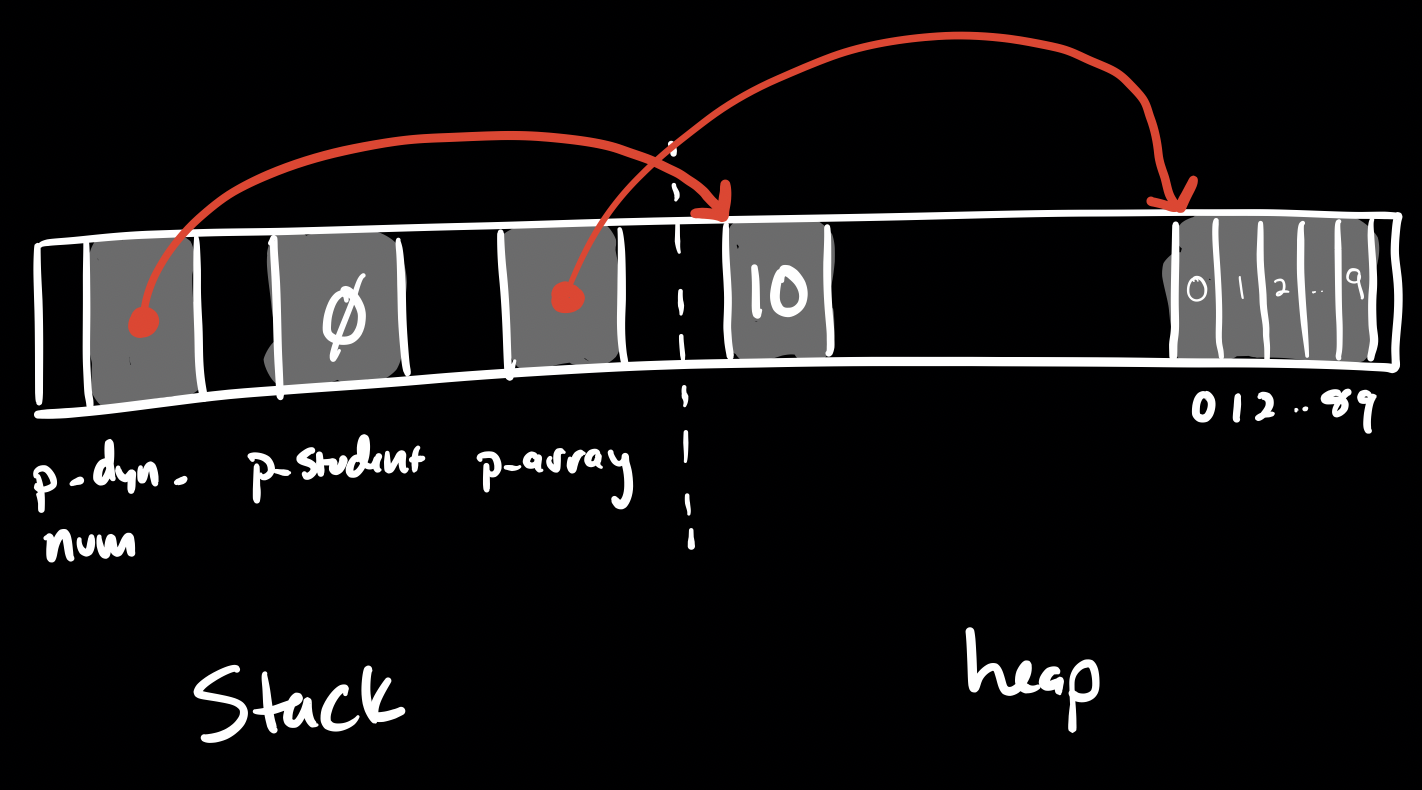 ∅ 10 0 1 2 .. 9
0 1 2 .. 8 9
p_dyn_ p_student p_array
num
Stack heap